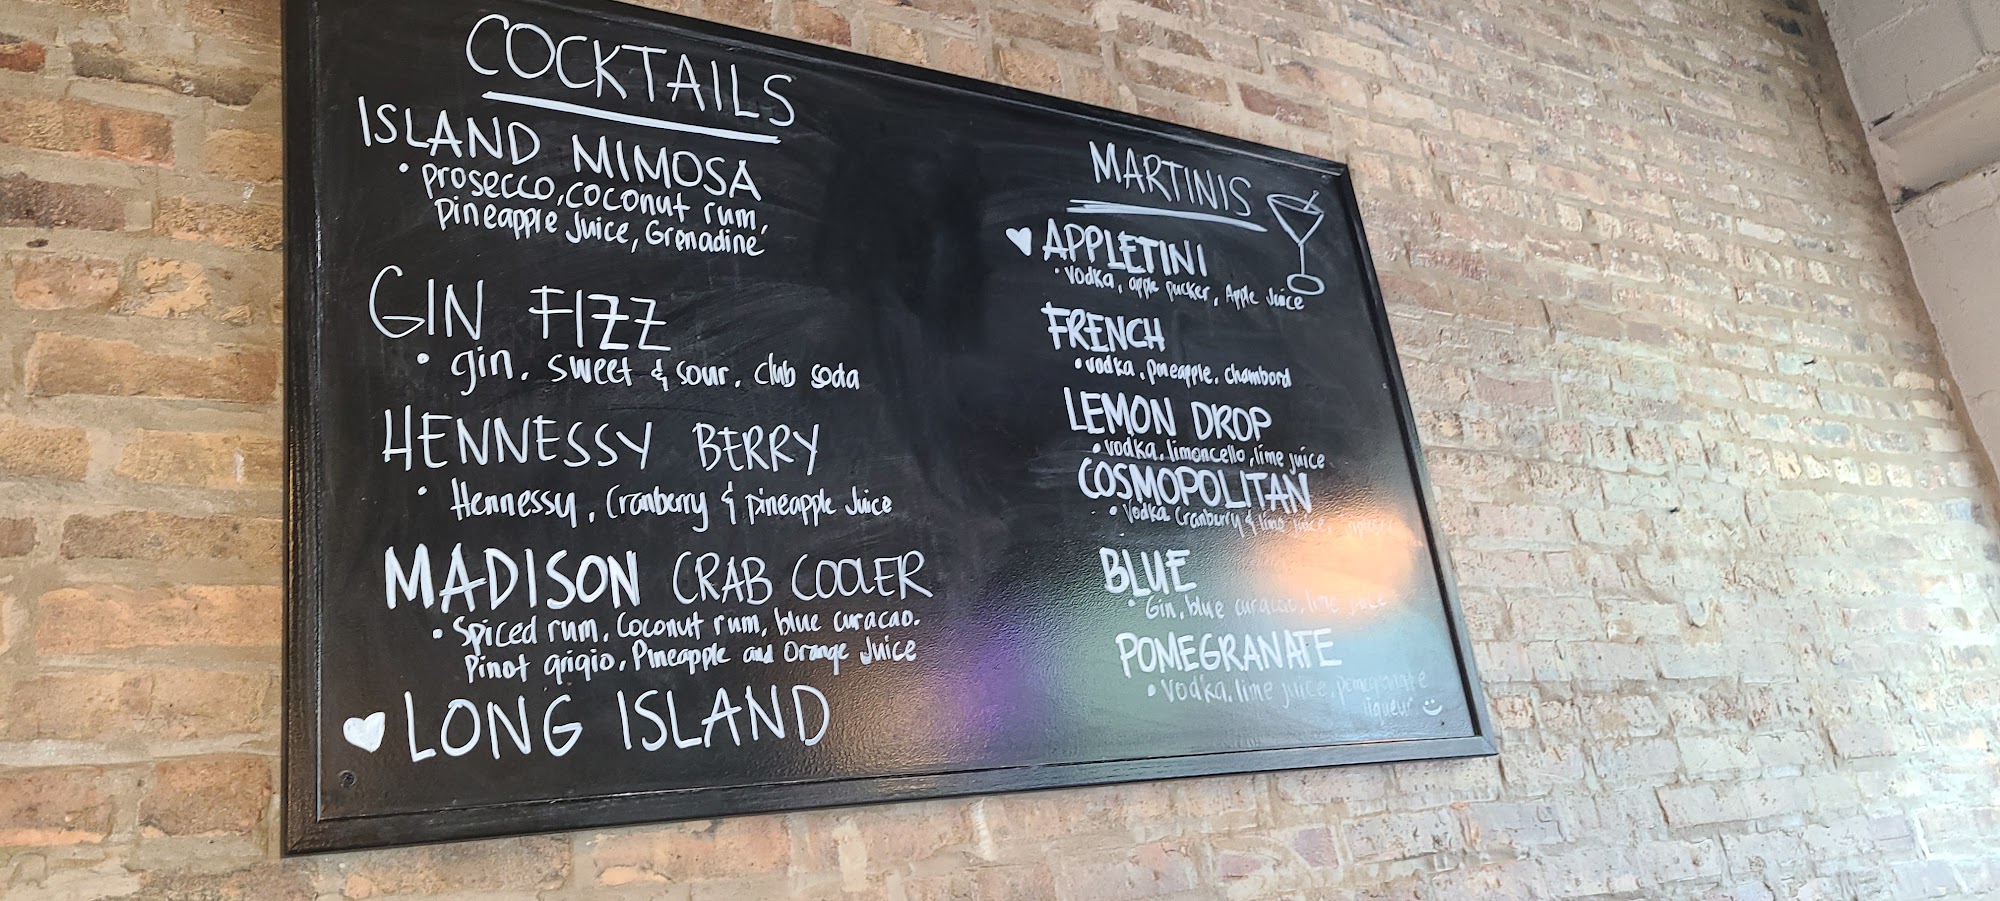 COCKTAILS
ISLAND MIMOSA
• prosecco, coconut rum,
pineapple Juice, Grenadine
GIN FIZZ
• gin, sweet & sour, club soda
HENNESSY BERRY
• Hennessy, Cranberry & pineapple Juice
MADISON CRAB COOLER
• Spiced rum, Coconut rum, blue curacao.
Pinot grigio, Pineapple and Orange Juice
LONG ISLAND
MARTINIS
APPLETINI
• vodka, apple pucker, Apple Juice
FRENCH
• vodka, pineapple, chambord
LEMON DROP
• vodka, limoncello, lime juice
COSMOPOLITAN
• Vodka Cranberry & lime juice,
BLUE
• Gin, blue curacao, lime juice
POMEGRANATE
• Vodka, lime juice, pomegranate
liqueur